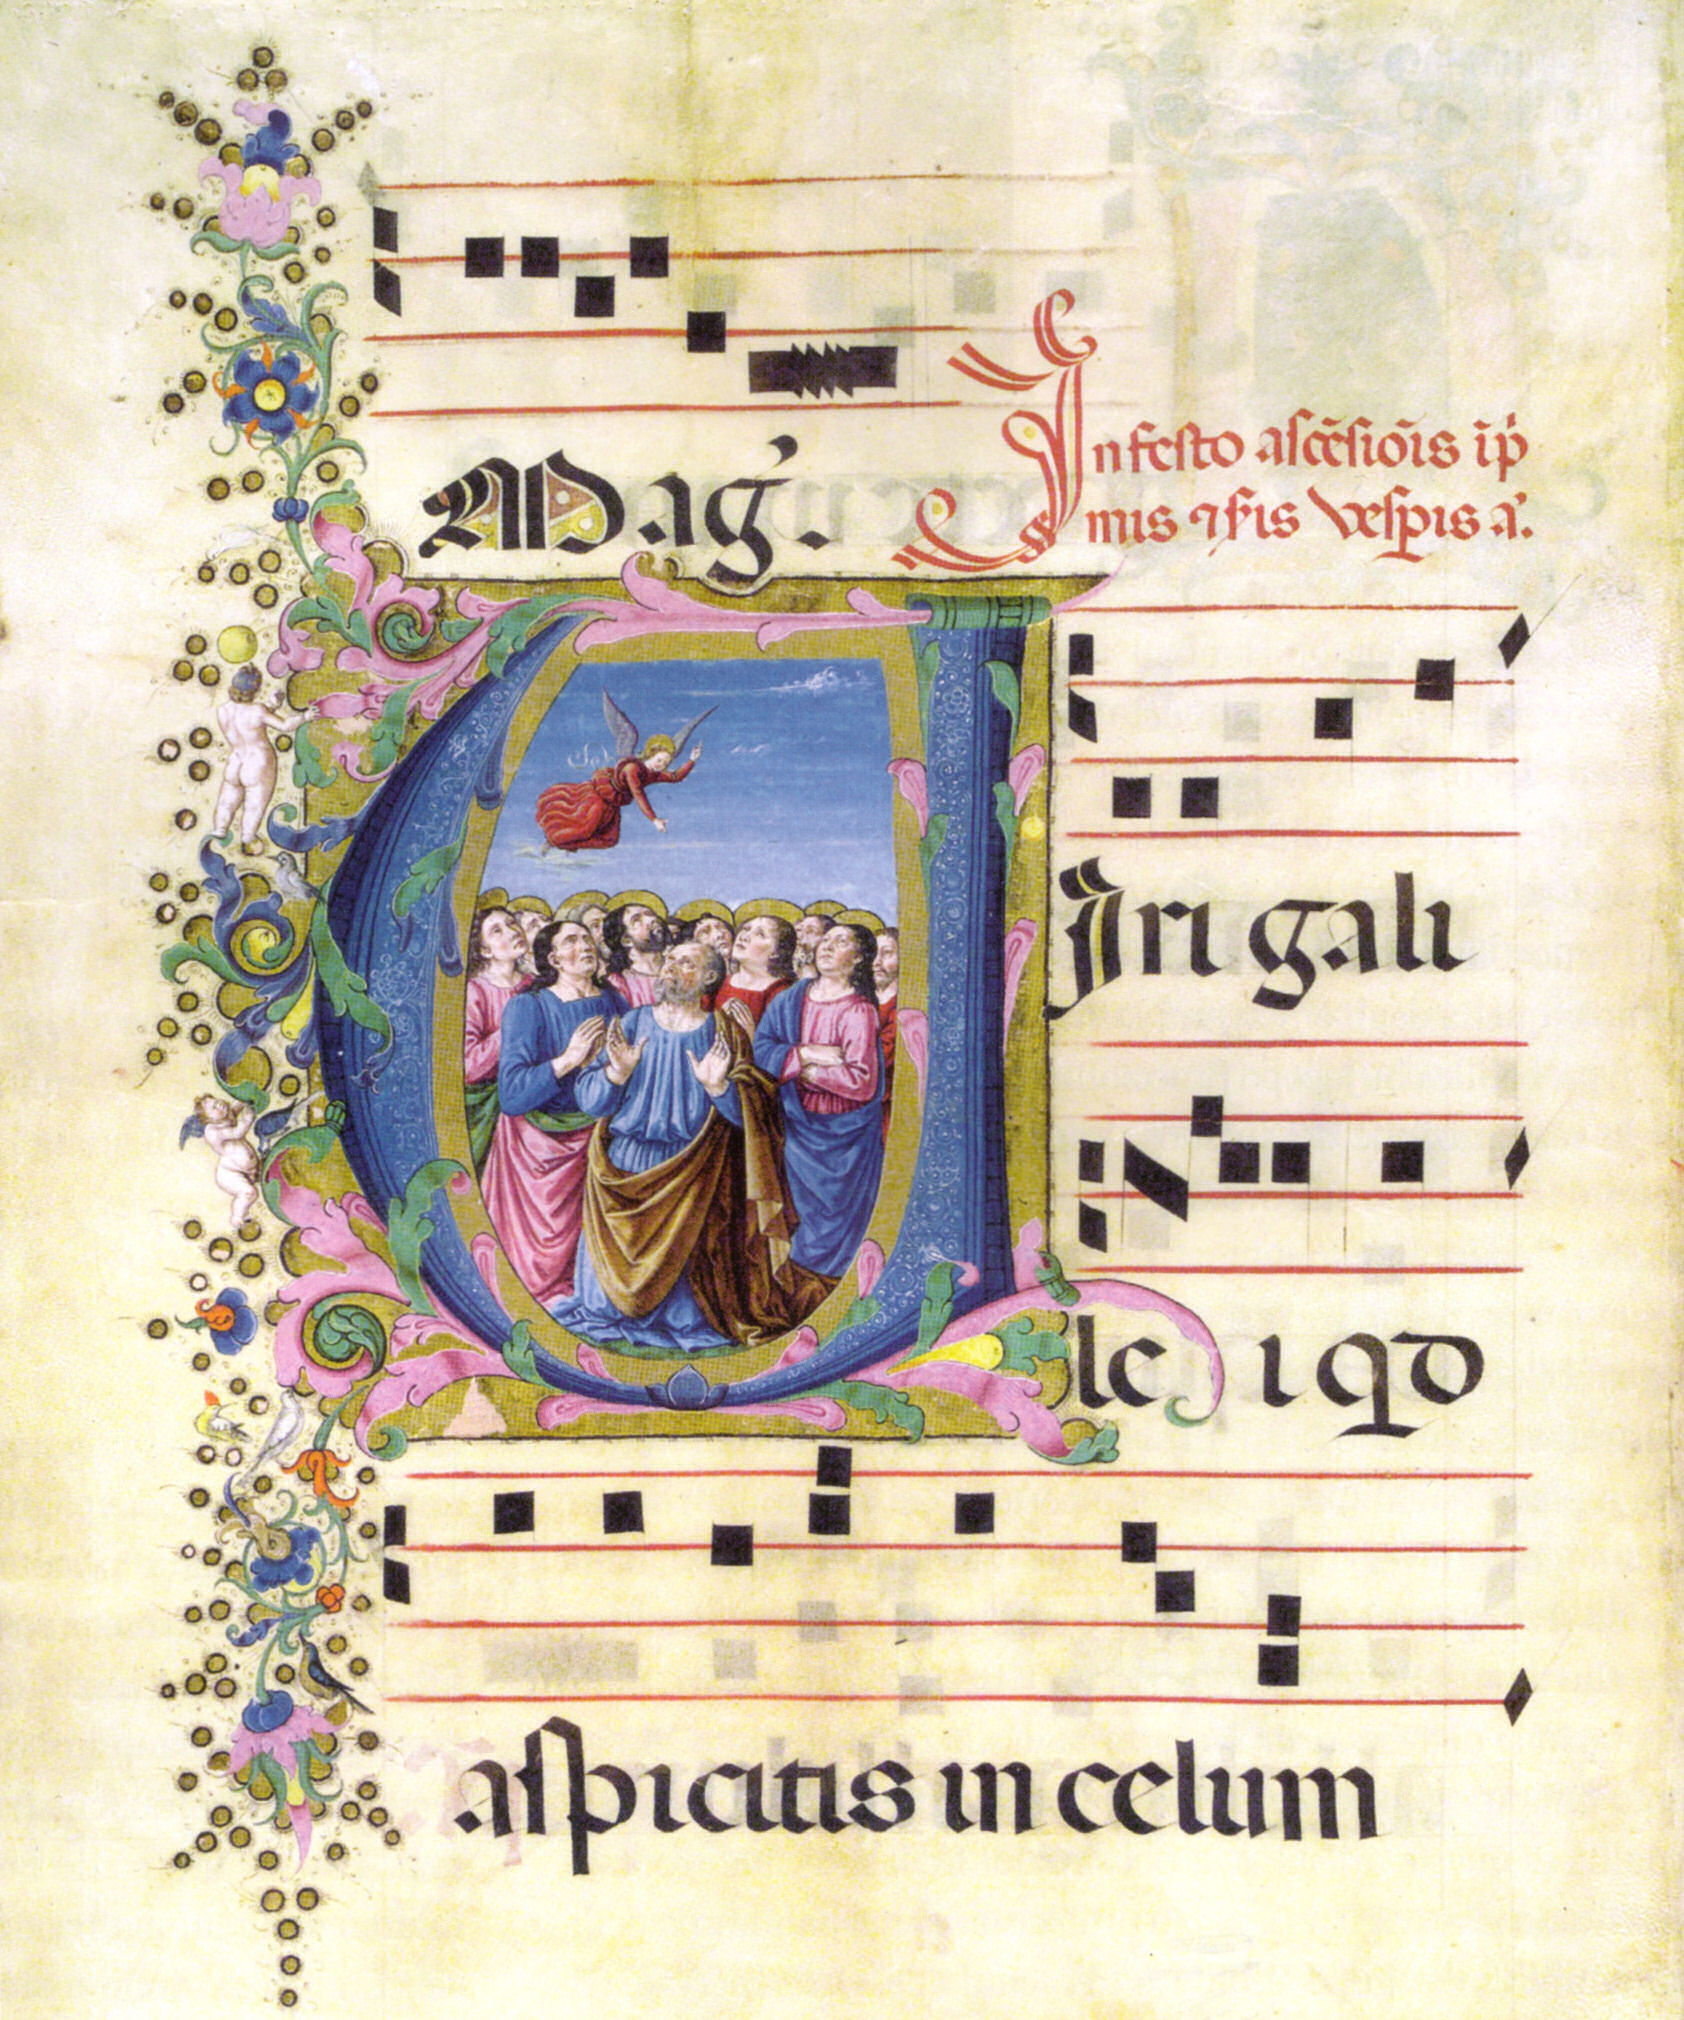 Mag̓.
In festo ascẽsiõis ĩ p̓
mis ⁊ sc̃is vesp̱is a.̃
Viri gali
le i qd
aspicitis in celum